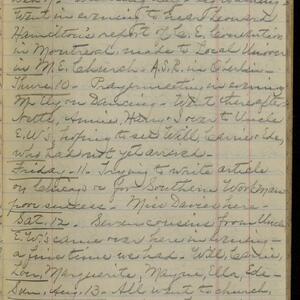 Went in evening to hear Leonard
Hamilton's report of C. E. Convention
in Montreal, made to Local Union
in M. E. Church. A.S.R. in Oberlin.
Thurs. 10. Prayer meeting in evening
Mostly on Dancing. Went thereafter
Nette, Annie, Harry & I over to Uncle
E.W's, hoping to see Will, Carrie, Ede,
who had not yet arrived.
Friday. 11. Trying to write article
on Chicago for Southern Workman
poor success. Miss Davies here.
Sat. 12. Seven cousins from Uncle
E.W.'s came over here in evening -
a fine time we had. Will, Carrie,
Lou, Marguerite, Mayne, Ella, Ede -
Sun. Aug. 13. All went to church,